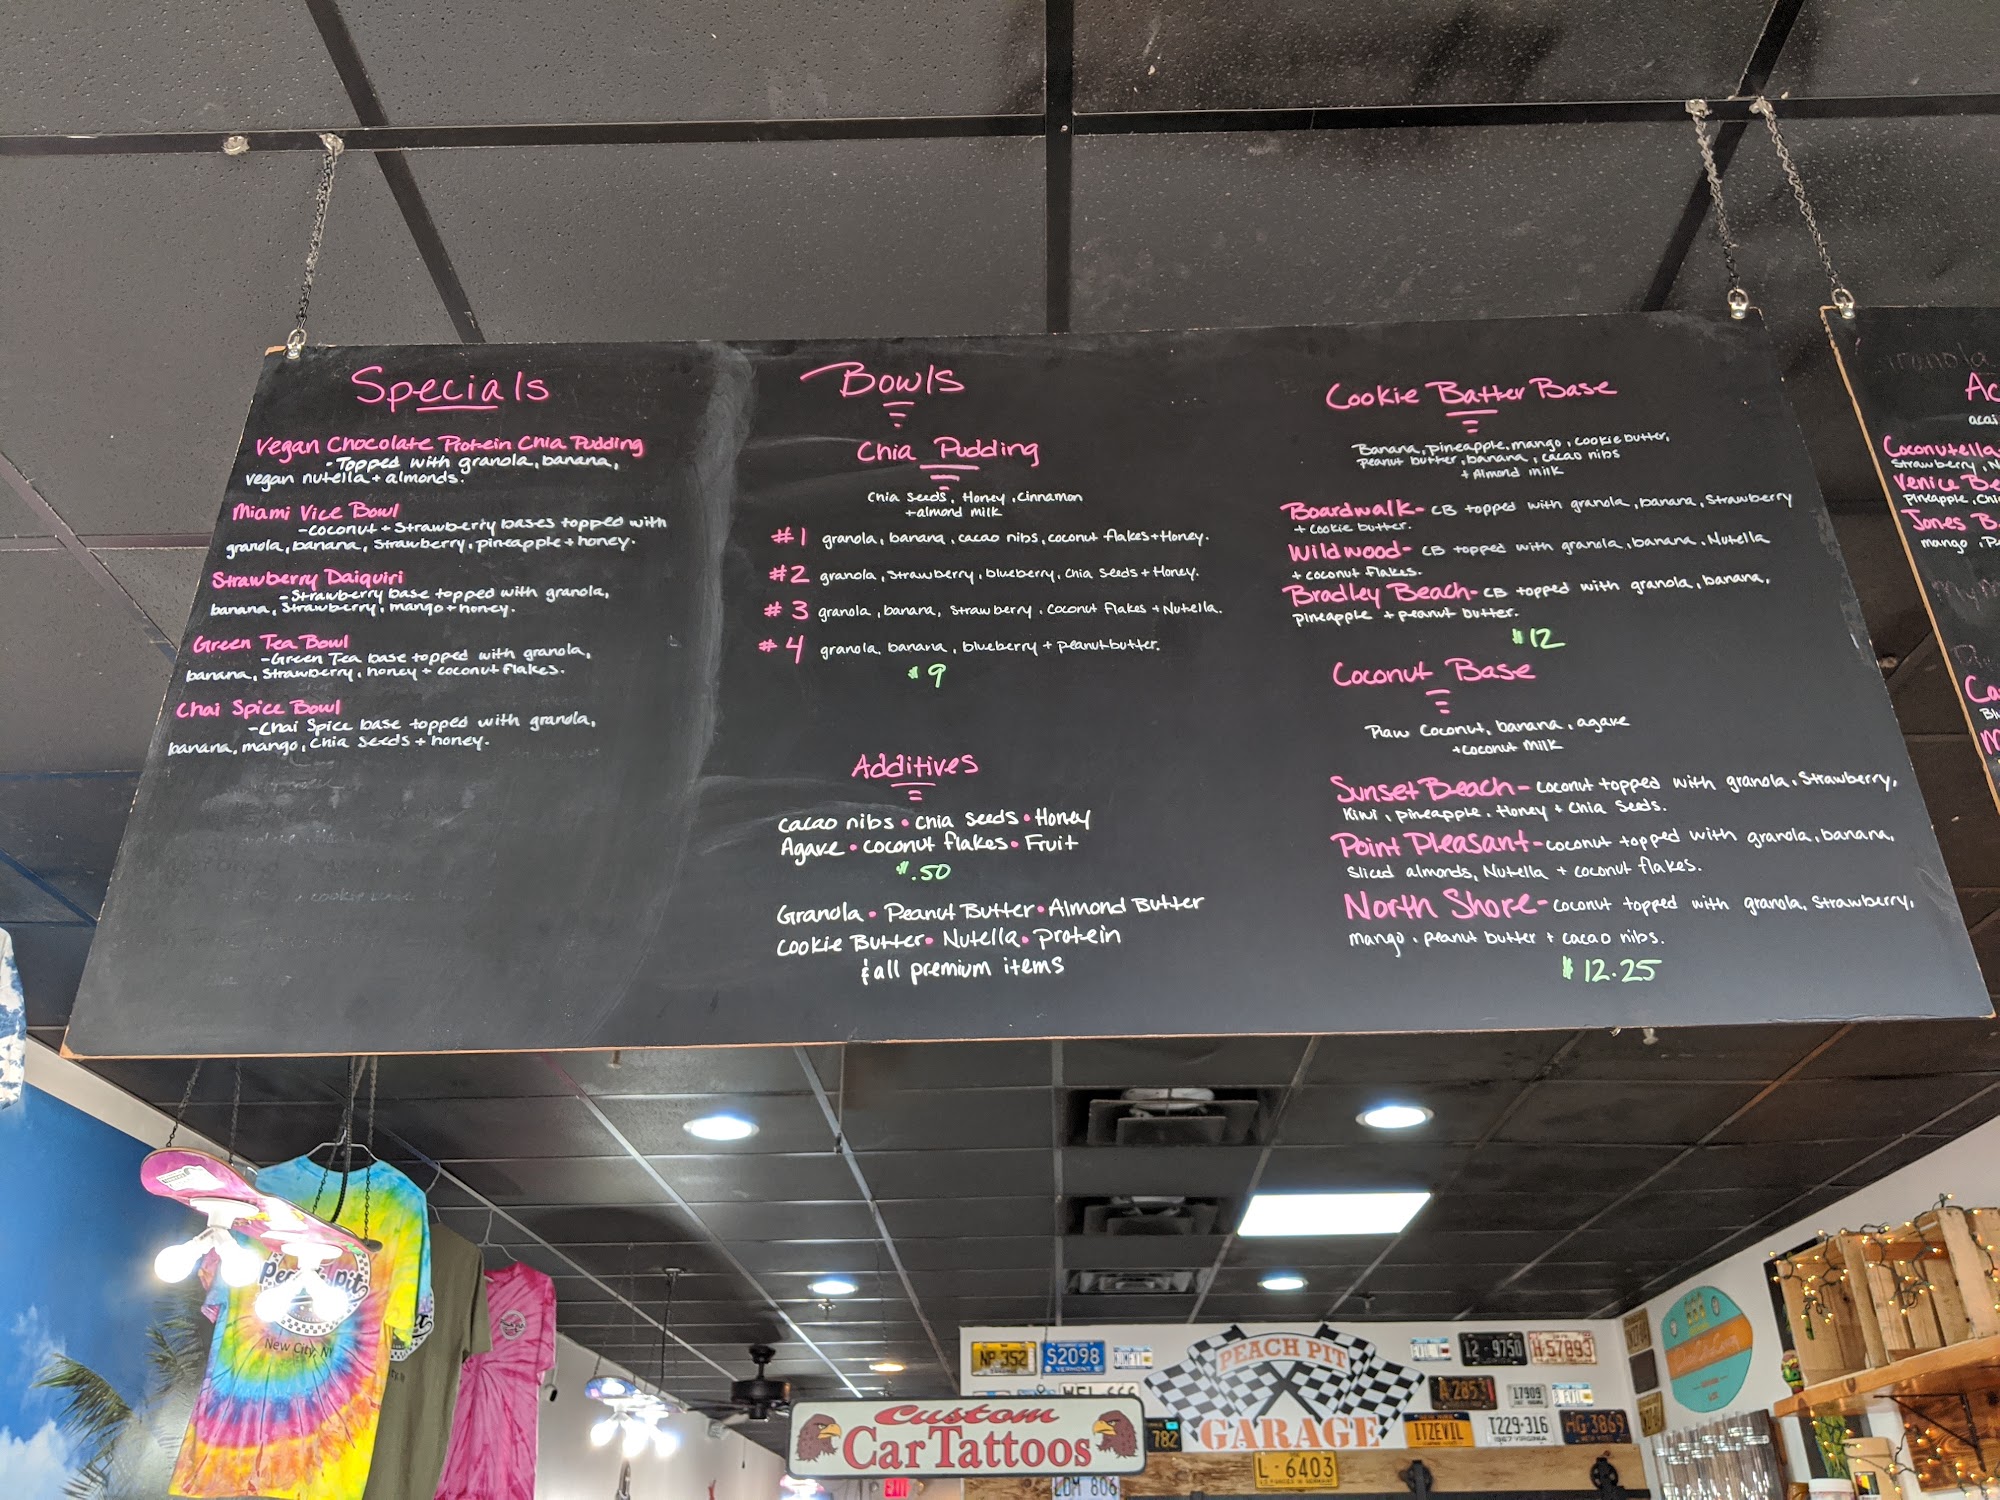 Specials
Vegan Chocolate Protein Chia Pudding
-Topped with granola, banana,
vegan nutella + almonds.
Miami Vice Bowl
-coconut + Strawberry bases topped with
granola, banana, strawberry, pineapple + honey.
Strawberry Daiquiri
-Strawberry base topped with granola,
banana, strawberry, mango + honey.
Green Tea Bowl
-Green Tea base topped with granola,
banana, strawberry, honey + coconut flakes.
Chai Spice Bowl
-Chai Spice base topped with granola,
banana, mango, chia seeds + honey.
Bowls
Chia Pudding
Chia seeds, Honey, cinnamon
+ almond milk
#1 granola, banana, cacao nibs, coconut flakes + Honey.
#2 granola, strawberry, blueberry, chia seeds + Honey.
#3 granola, banana, strawberry, coconut flakes + Nutella.
#4 granola, banana, blueberry + peanut butter.
$9
Additives
cacao nibs • chia seeds • Honey
Agave • coconut flakes • Fruit
$.50
Granola • Peanut Butter • Almond Butter
Cookie Butter • Nutella • protein
& all premium items
Cookie Batter Base
Banana, pineapple, mango, cookie butter,
peanut butter, banana, cacao nibs
+ Almond milk
Boardwalk- CB topped with granola, banana, strawberry
+ cookie butter.
Wildwood- CB topped with granola, banana, Nutella
+ coconut flakes.
Bradley Beach- CB topped with granola, banana,
pineapple + peanut butter.
$12
Coconut Base
Raw Coconut, banana, agave
+coconut milk
Sunset Beach- coconut topped with granola, strawberry,
kiwi, pineapple, Honey + chia seeds.
Point Pleasant- coconut topped with granola, banana,
sliced almonds, Nutella + coconut flakes.
North Shore- coconut topped with granola, strawberry,
mango, peanut butter + cacao nibs.
$12.25
acai
Coconutella
Strawberry, N
Venice Be
Pineapple, Chi
Jones B
mango, P
New City, N
NP 352
S2098
VERMONT
PEACH PIT
GARAGE
12-9750
H-57893
A-2853
17909
ITZEVIL
T229-316
HG 3869
782
L-6403
LDM 806
Custom
Car Tattoos
EXIT